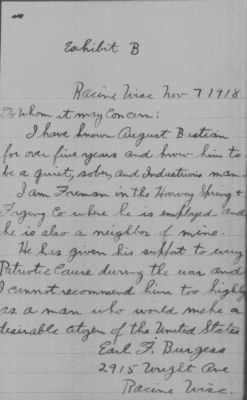 Exhibit B
Racine Wisc Nov 7 1918.
To Whom it may Concern:
I have known August Bustian
for over five years and know him to
be a quiet, sober, and Industrious man.
I am Foreman in the Harvey Spring +
Forging Co where he is employed and
he is also a neighbor of mine.
He has given his support to every
Patriotic Cause during the war and
I cannot recommend him too highly
as a man who would make a
desirable citizen of the United States
Earl F. Burgess
2915 Wright Ave
Racine Wisc.